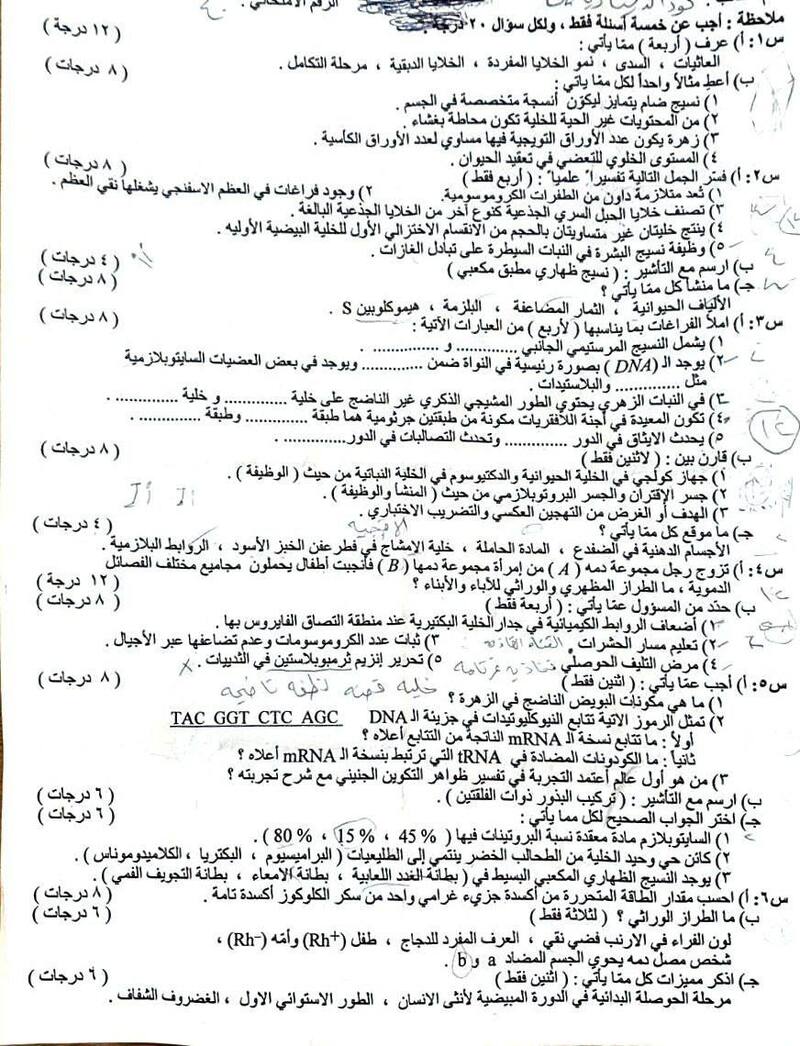 ملاحظة : أجب عن خمسة أسئلة فقط ، ولكل سؤال ٢٠ درجة .
س١: أ) عرف ( أربعة ) ممّا يأتي : ( ١٢ درجة )
العاثيات ، السدى ، نمو الخلايا المفردة ، الخلايا الدبقية ، مرحلة التكامل .
ب) أعطِ مثالاً واحداً لكل ممّا يأتي : ( ٨ درجات )
١) نسيج ضام يتمايز ليكوّن أنسجة متخصصة في الجسم .
٢) من المحتويات غير الحية للخلية تكون محاطة بغشاء .
٣) زهرة يكون عدد الأوراق التويجية فيها مساوي لعدد الأوراق الكأسية .
٤) المستوى الخلوي للتعضي في تعقيد الحيوان .
س٢: أ) فسّر الجمل التالية تفسيراً علمياً : ( أربع فقط ) ( ٨ درجات )
١) تُعد متلازمة داون من الطفرات الكروموسومية. ٢) وجود فراغات في العظم الاسفنجي يشغلها نقي العظم .
٣) تصنف خلايا الحبل السري الجذعية كنوع آخر من الخلايا الجذعية البالغة .
٤) ينتج خليتان غير متساويتان بالحجم من الانقسام الاختزالي الأول للخلية البيضية الأوليه .
٥) وظيفة نسيج البشرة في النبات السيطرة على تبادل الغازات .
ب) ارسم مع التأشير : ( نسيج ظهاري مطبق مكعبي ) ( ٤ درجات )
جـ) ما منشأ كل ممّا يأتي ؟ ( ٨ درجات )
الألياف الحيوانية ، الثمار المضاعفة ، البلزمة ، هيموكلوبين S .
س٣: أ) املأ الفراغات بما يناسبها ( لأربع ) من العبارات الآتية : ( ٨ درجات )
١) يشمل النسيج المرستيمي الجانبي .............. و ............. .
٢) يوجد الـ (DNA) بصورة رئيسية في النواة ضمن ............. ويوجد في بعض العضيات السايتوبلازمية
مثل ............. والبلاستيدات .
٣) في النبات الزهري يحتوي الطور المشيجي الذكري غير الناضج على خلية ............. و خلية ............. .
٤) تكون المعيدة في أجنة اللافقريات مكونة من طبقتين جرثومية هما طبقة ............. وطبقة ............. .
٥) يحدث الايثاق في الدور ............. وتحدث التصالبات في الدور............. .
ب) قارن بين : ( لاثنين فقط ) ( ٨ درجات )
١) جهاز كولجي في الخلية الحيوانية والدكتيوسوم في الخلية النباتية من حيث ( الوظيفة ) .
٢) جسر الإقتران والجسر البروتوبلازمي من حيث ( المنشأ والوظيفة ) .
٣) الهدف أو الغرض من التهجين العكسي والتضريب الاختباري .
جـ) ما موقع كل ممّا يأتي ؟ ( ٤ درجات )
الأجسام الدهنية في الضفدع ، المادة الحاملة ، خلية الإمشاج في فطر عفن الخبز الأسود ، الروابط البلازمية .
س٤: أ) تزوج رجل مجموعة دمه ( A ) من إمرأة مجموعة دمها ( B ) فأنجبت أطفال يحملون مجاميع مختلف الفصائل
الدموية ، ما الطراز المظهري والوراثي للآباء والأبناء ؟ ( ١٢ درجة )
ب) حدّد من المسؤول عمّا يأتي : ( أربعة فقط ) ( ٨ درجات )
١) أضعاف الروابط الكيميائية في جدار الخلية البكتيرية عند منطقة التصاق الفايروس بها .
٢) تعليم مسار الحشرات . ٣) ثبات عدد الكروموسومات وعدم تضاعفها عبر الأجيال .
٤) مرض التليف الحوصلي ٥) تحرير إنزيم ثرمبوبلاستين في الثدييات .
س٥: أ) أجب عمّا يأتي : ( اثنين فقط ) ( ٨ درجات )
١) ما هي مكونات البويض الناضج في الزهرة ؟
٢) تمثل الرموز الآتية تتابع النيوكليوتيدات في جزيئة الـ DNA TAC GGT CTC AGC
أولاً : ما تتابع نسخة الـ mRNA الناتجة من التتابع أعلاه ؟
ثانياً : ما الكودونات المضادة في tRNA التي ترتبط بنسخة الـ mRNA أعلاه ؟
٣) من هو أول عالم أعتمد التجربة في تفسير ظواهر التكوين الجنيني مع شرح تجربته ؟
ب) ارسم مع التأشير : ( تركيب البذور ذوات الفلقتين ) . ( ٦ درجات )
جـ) اختر الجواب الصحيح لكل مما يأتي : ( ٦ درجات )
١) السايتوبلازم مادة معقدة نسبة البروتينات فيها ( 45 % ، 15 % ، 80 % ) .
٢) كائن حي وحيد الخلية من الطحالب الخضر ينتمي إلى الطليعيات ( البراميسيوم ، البكتريا ، الكلاميدوموناس ) .
٣) يوجد النسيج الظهاري المكعبي البسيط في ( بطانة الغدد اللعابية ، بطانة الامعاء ، بطانة التجويف الفمي ) .
س٦: أ) احسب مقدار الطاقة المتحررة من أكسدة جزيء غرامي واحد من سكر الكلوكوز أكسدة تامة . ( ٨ درجات )
ب) ما الطراز الوراثي ؟ ( لثلاثة فقط ) ( ٦ درجات )
لون الفراء في الارنب فضي نقي ، العرف المفرد للدجاج ، طفل (Rh⁺) وأمّه (Rh⁻) ،
شخص مصل دمه يحوي الجسم المضاد a و b .
جـ) اذكر مميزات كل ممّا يأتي : ( اثنين فقط ) ( ٦ درجات )
مرحلة الحوصلة البدائية في الدورة المبيضية لأنثى الانسان ، الطور الاستوائي الاول ، الغضروف الشفاف .